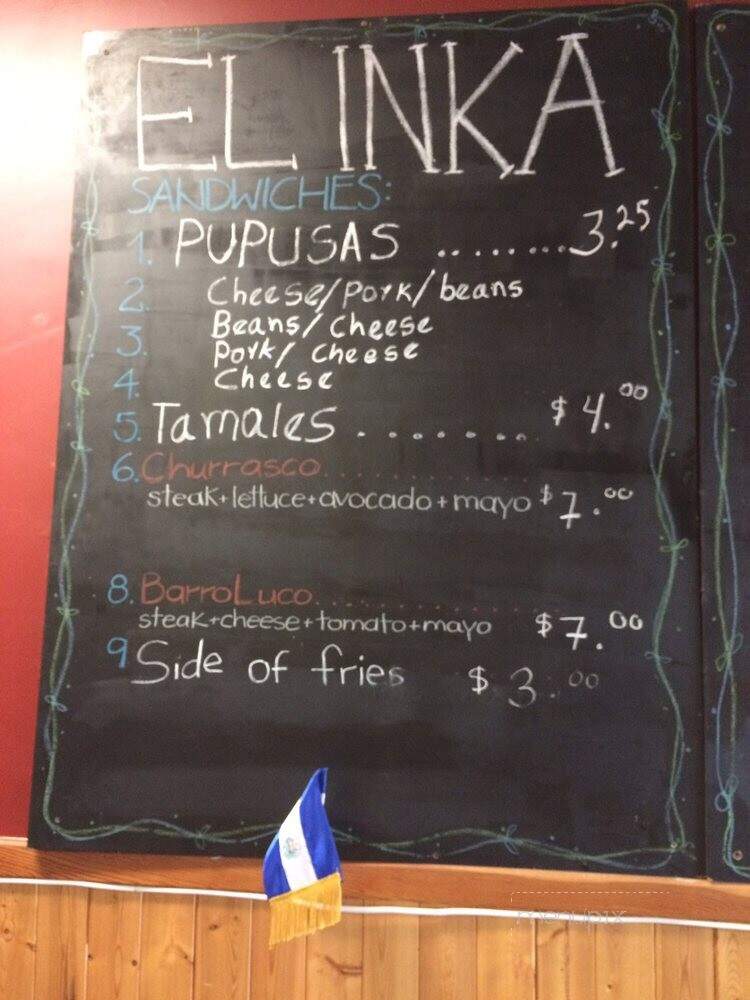 EL INKA
SANDWICHES:
1. PUPUSAS ........ 3.25
2. Cheese/Pork/beans
3. Beans/Cheese
Pork/Cheese
4. Cheese
5. Tamales ........ $4.00
6. Churrasco..............
steak+lettuce+avocado+mayo $7.00
8. BarroLuco..............
steak+cheese+tomato+mayo $7.00
9 Side of fries $3.00